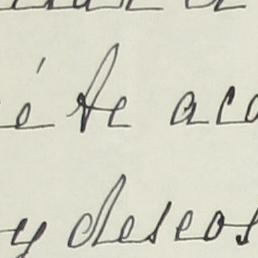 é te aco
y deseos